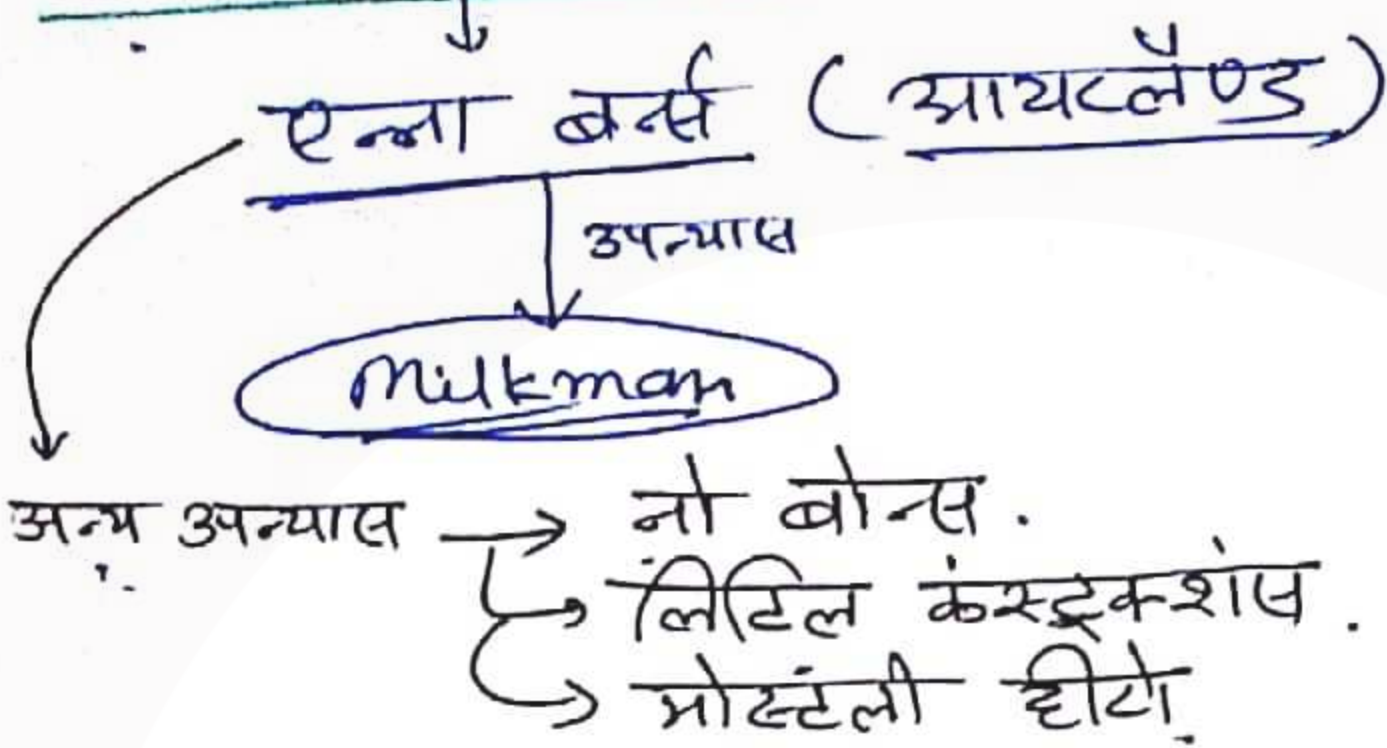 एन्ना बर्न्स (आयरलैण्ड)
उपन्यास
Milkman
अन्य उपन्यास → नो बोन्स.
लिटिल कंस्ट्रक्शंस.
मोस्टली हीरो.